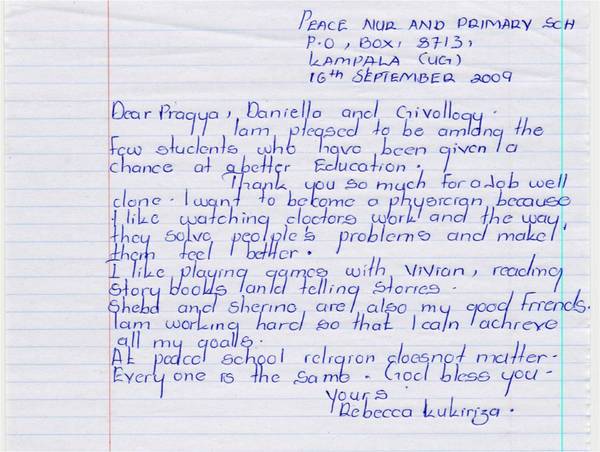 PEACE NUR AND PRIMARY SCH
P.O, BOX, 8713,
KAMPALA (UG)
16th SEPTEMBER 2009
Dear Pragya, Daniella and Givology.
Iam pleased to be among the
few students who have been given a
chance at abetter Education.
Thank you so much for aJob well
done. I want to become a physician because
I like watching doctors work and the way
they solve people's problems and make
them feel better.
I like playing games with Vivian, reading
Story books and telling stories.
Sheba and sherino are also my good friends.
Iam working hard so that I can achieve
all my goals.
At school religion doesnot matter.
Every one is the same. God bless you.
Yours
Rebecca Kukiriza.